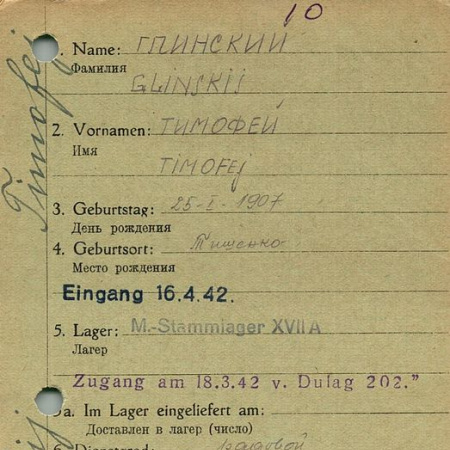 10
1. Name: ГЛИНСКИЙ
Фамилия
GLINSKIJ
Timofej
2. Vornamen: ТИМОФЕЙ
Имя
TIMOFEj
3. Geburtstag: 25-I-1907
День рождения
4. Geburtsort: Тищенко
Место рождения
Eingang 16.4.42.
5. Lager: M.-Stammlager XVII A
Лагерь
Zugang am 18.3.42 v. Dulag 202."
5a. Im Lager eingeliefert am:
Доставлен в лагерь (число)
6. Dienstgrad: рядовой